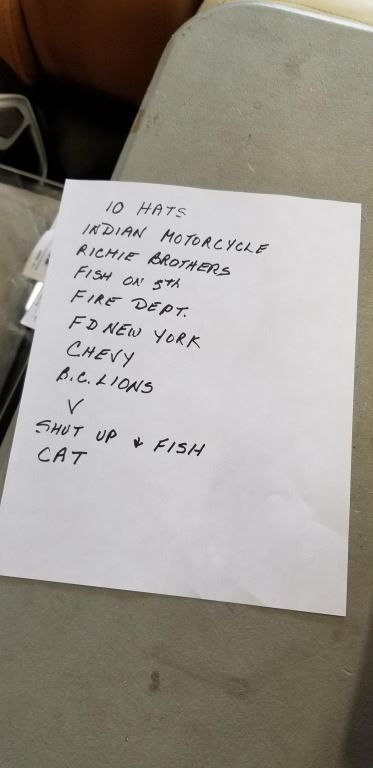 10 HATS
INDIAN MOTORCYCLE
RICHIE BROTHERS
FISH ON 5th
FIRE DEPT.
FD NEW YORK
CHEVY
B.C. LIONS
V
SHUT UP & FISH
CAT